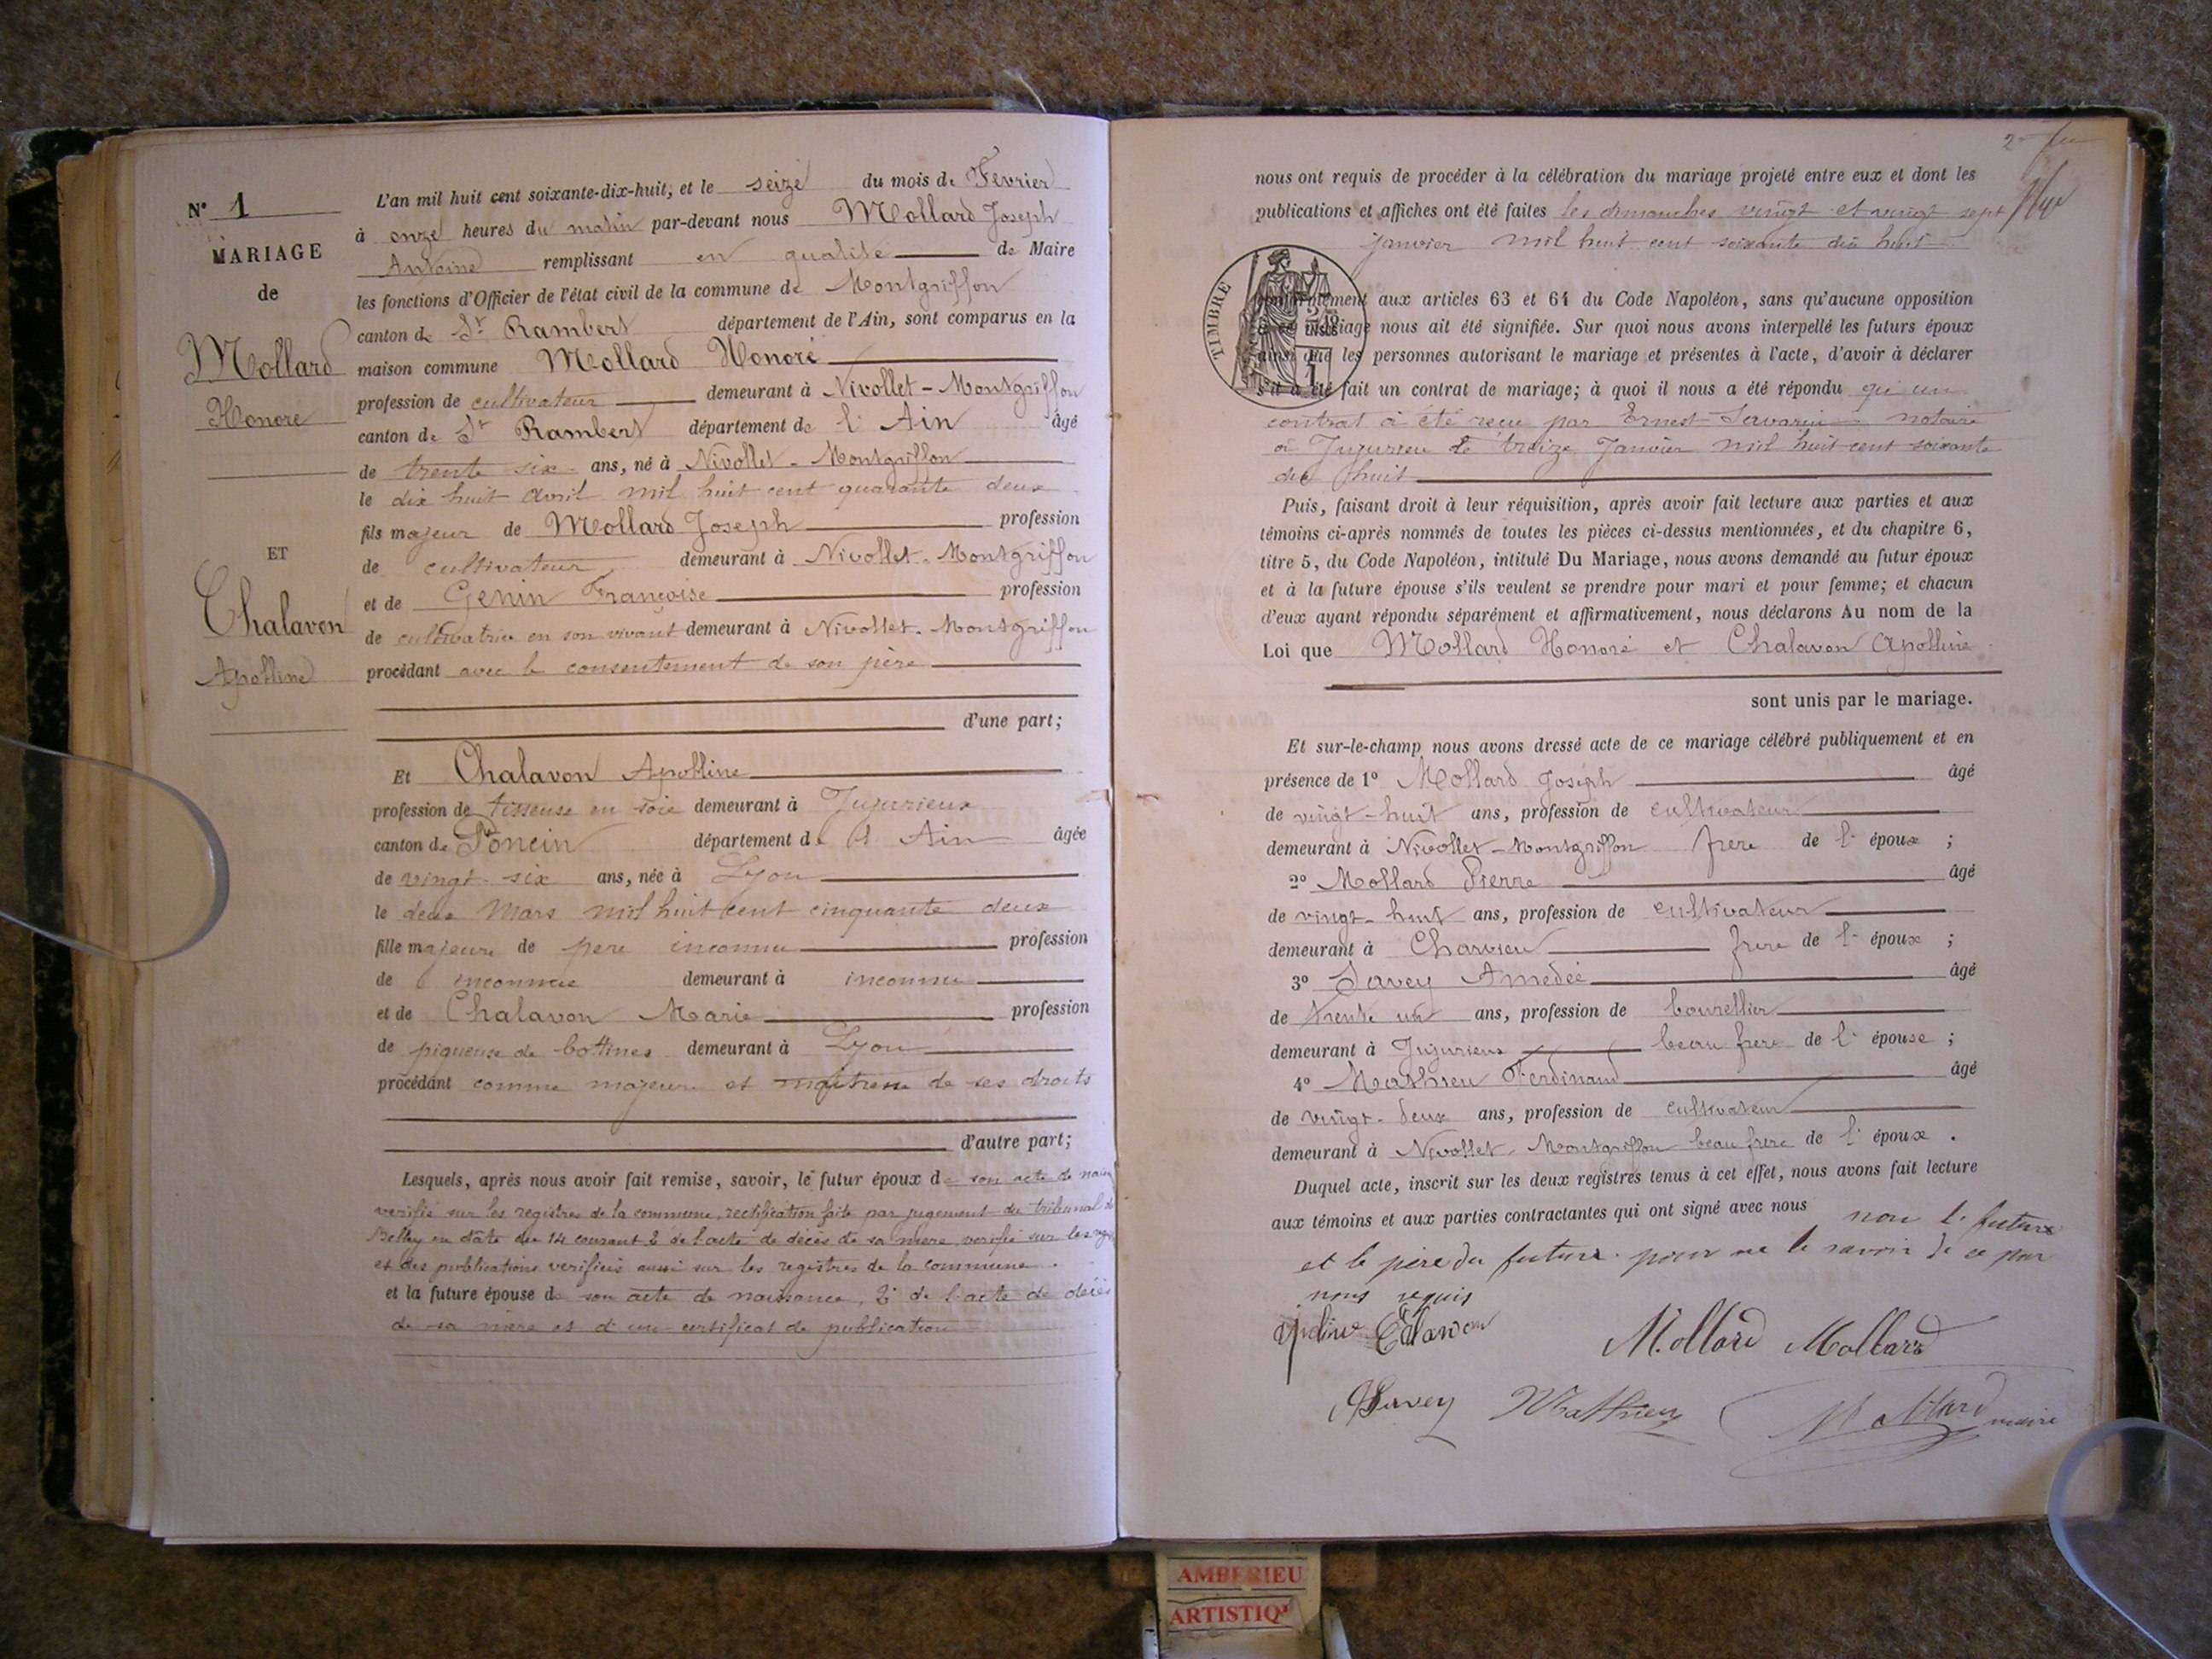 N° 1
MARIAGE
de
Mollard
Honoré
ET
Chalavon
Apolline
L'an mil huit cent soixante-dix-huit, et le seize du mois de Février
à onze heures du matin par-devant nous Mollard Joseph
Antoine remplissant en qualité de Maire
les fonctions d'Officier de l'état civil de la commune de Montgriffon
canton de St Rambert département de l'Ain, sont comparus en la
maison commune Mollard Honoré
profession de cultivateur demeurant à Nivollet-Montgriffon
canton de St Rambert département de l'Ain âgé
de trente six ans, né à Nivollet-Montgriffon
le dix huit avril mil huit cent quarante deux
fils majeur de Mollard Joseph profession
de cultivateur demeurant à Nivollet-Montgriffon
et de Genin Françoise profession
de cultivatrice en son vivant demeurant à Nivollet-Montgriffon
procédant avec le consentement de son père
d'une part;
Et Chalavon Apolline
profession de tisseuse en soie demeurant à Jujurieux
canton de Poncin département de l'Ain âgée
de vingt-six ans, née à Lyon
le deux Mars mil huit cent cinquante deux
fille majeure de père inconnu profession
de inconnue demeurant à inconnu
et de Chalavon Marie profession
de piqueuse de bottines demeurant à Lyon
procédant comme majeure et maîtresse de ses droits
d'autre part;
Lesquels, après nous avoir fait remise, savoir, le futur époux de son acte de
verifié sur les registres de la commune, rectification faite par jugement du tribunal de
Belley en date du 14 courant 2° de l'acte de décès de sa mère, verifié sur les
et des publications verifiées aussi sur les registres de la commune.
et la future épouse de son acte de naissance, 2° de l'acte de décès
de sa mère et d'un certificat de publication
nous ont requis de procéder à la célébration du mariage projeté entre eux et dont les
publications et affiches ont été faites les dimanches vingt et vingt sept
janvier mil huit cent soixante dix huit
TIMBRE
conformément aux articles 63 et 64 du Code Napoléon, sans qu'aucune opposition
à ce mariage nous ait été signifiée. Sur quoi nous avons interpellé les futurs époux
ainsi que les personnes autorisant le mariage et présentes à l'acte, d'avoir à déclarer
s'il a été fait un contrat de mariage; à quoi il nous a été répondu qu'un
contrat à été reçu par Ernest Savarin notaire
à Jujurieu le treize Janvier mil huit cent soixante
dix huit
Puis, faisant droit à leur réquisition, après avoir fait lecture aux parties et aux
témoins ci-après nommés de toutes les pièces ci-dessus mentionnées, et du chapitre 6,
titre 5, du Code Napoléon, intitulé Du Mariage, nous avons demandé au futur époux
et à la future épouse s'ils veulent se prendre pour mari et pour femme; et chacun
d'eux ayant répondu séparément et affirmativement, nous déclarons Au nom de la
Loi que Mollard Honoré et Chalavon Apolline
sont unis par le mariage.
Et sur-le-champ nous avons dressé acte de ce mariage célébré publiquement et en
présence de 1° Mollard Joseph âgé
de vingt-huit ans, profession de cultivateur
demeurant à Nivollet-Montgriffon frere de l' époux ;
2° Mollard Pierre âgé
de vingt-huit ans, profession de cultivateur
demeurant à Charvieu frere de l' époux ;
3° Savey Amedée âgé
de trente un ans, profession de bourellier
demeurant à Jujurieux beau frere de l' épouse ;
4° Mathieu Ferdinand âgé
de vingt-deux ans, profession de cultivateur
demeurant à Nivollet-Montgriffon beau frere de l' époux .
Duquel acte, inscrit sur les deux registres tenus à cet effet, nous avons fait lecture
aux témoins et aux parties contractantes qui ont signé avec nous non le future
et le père du future pour ne le savoir de ce par
nous requis
Apoline Chalavon Mollard Mollard
Savey Mathieu Mollard maire
AMBERIEU
ARTISTIQ